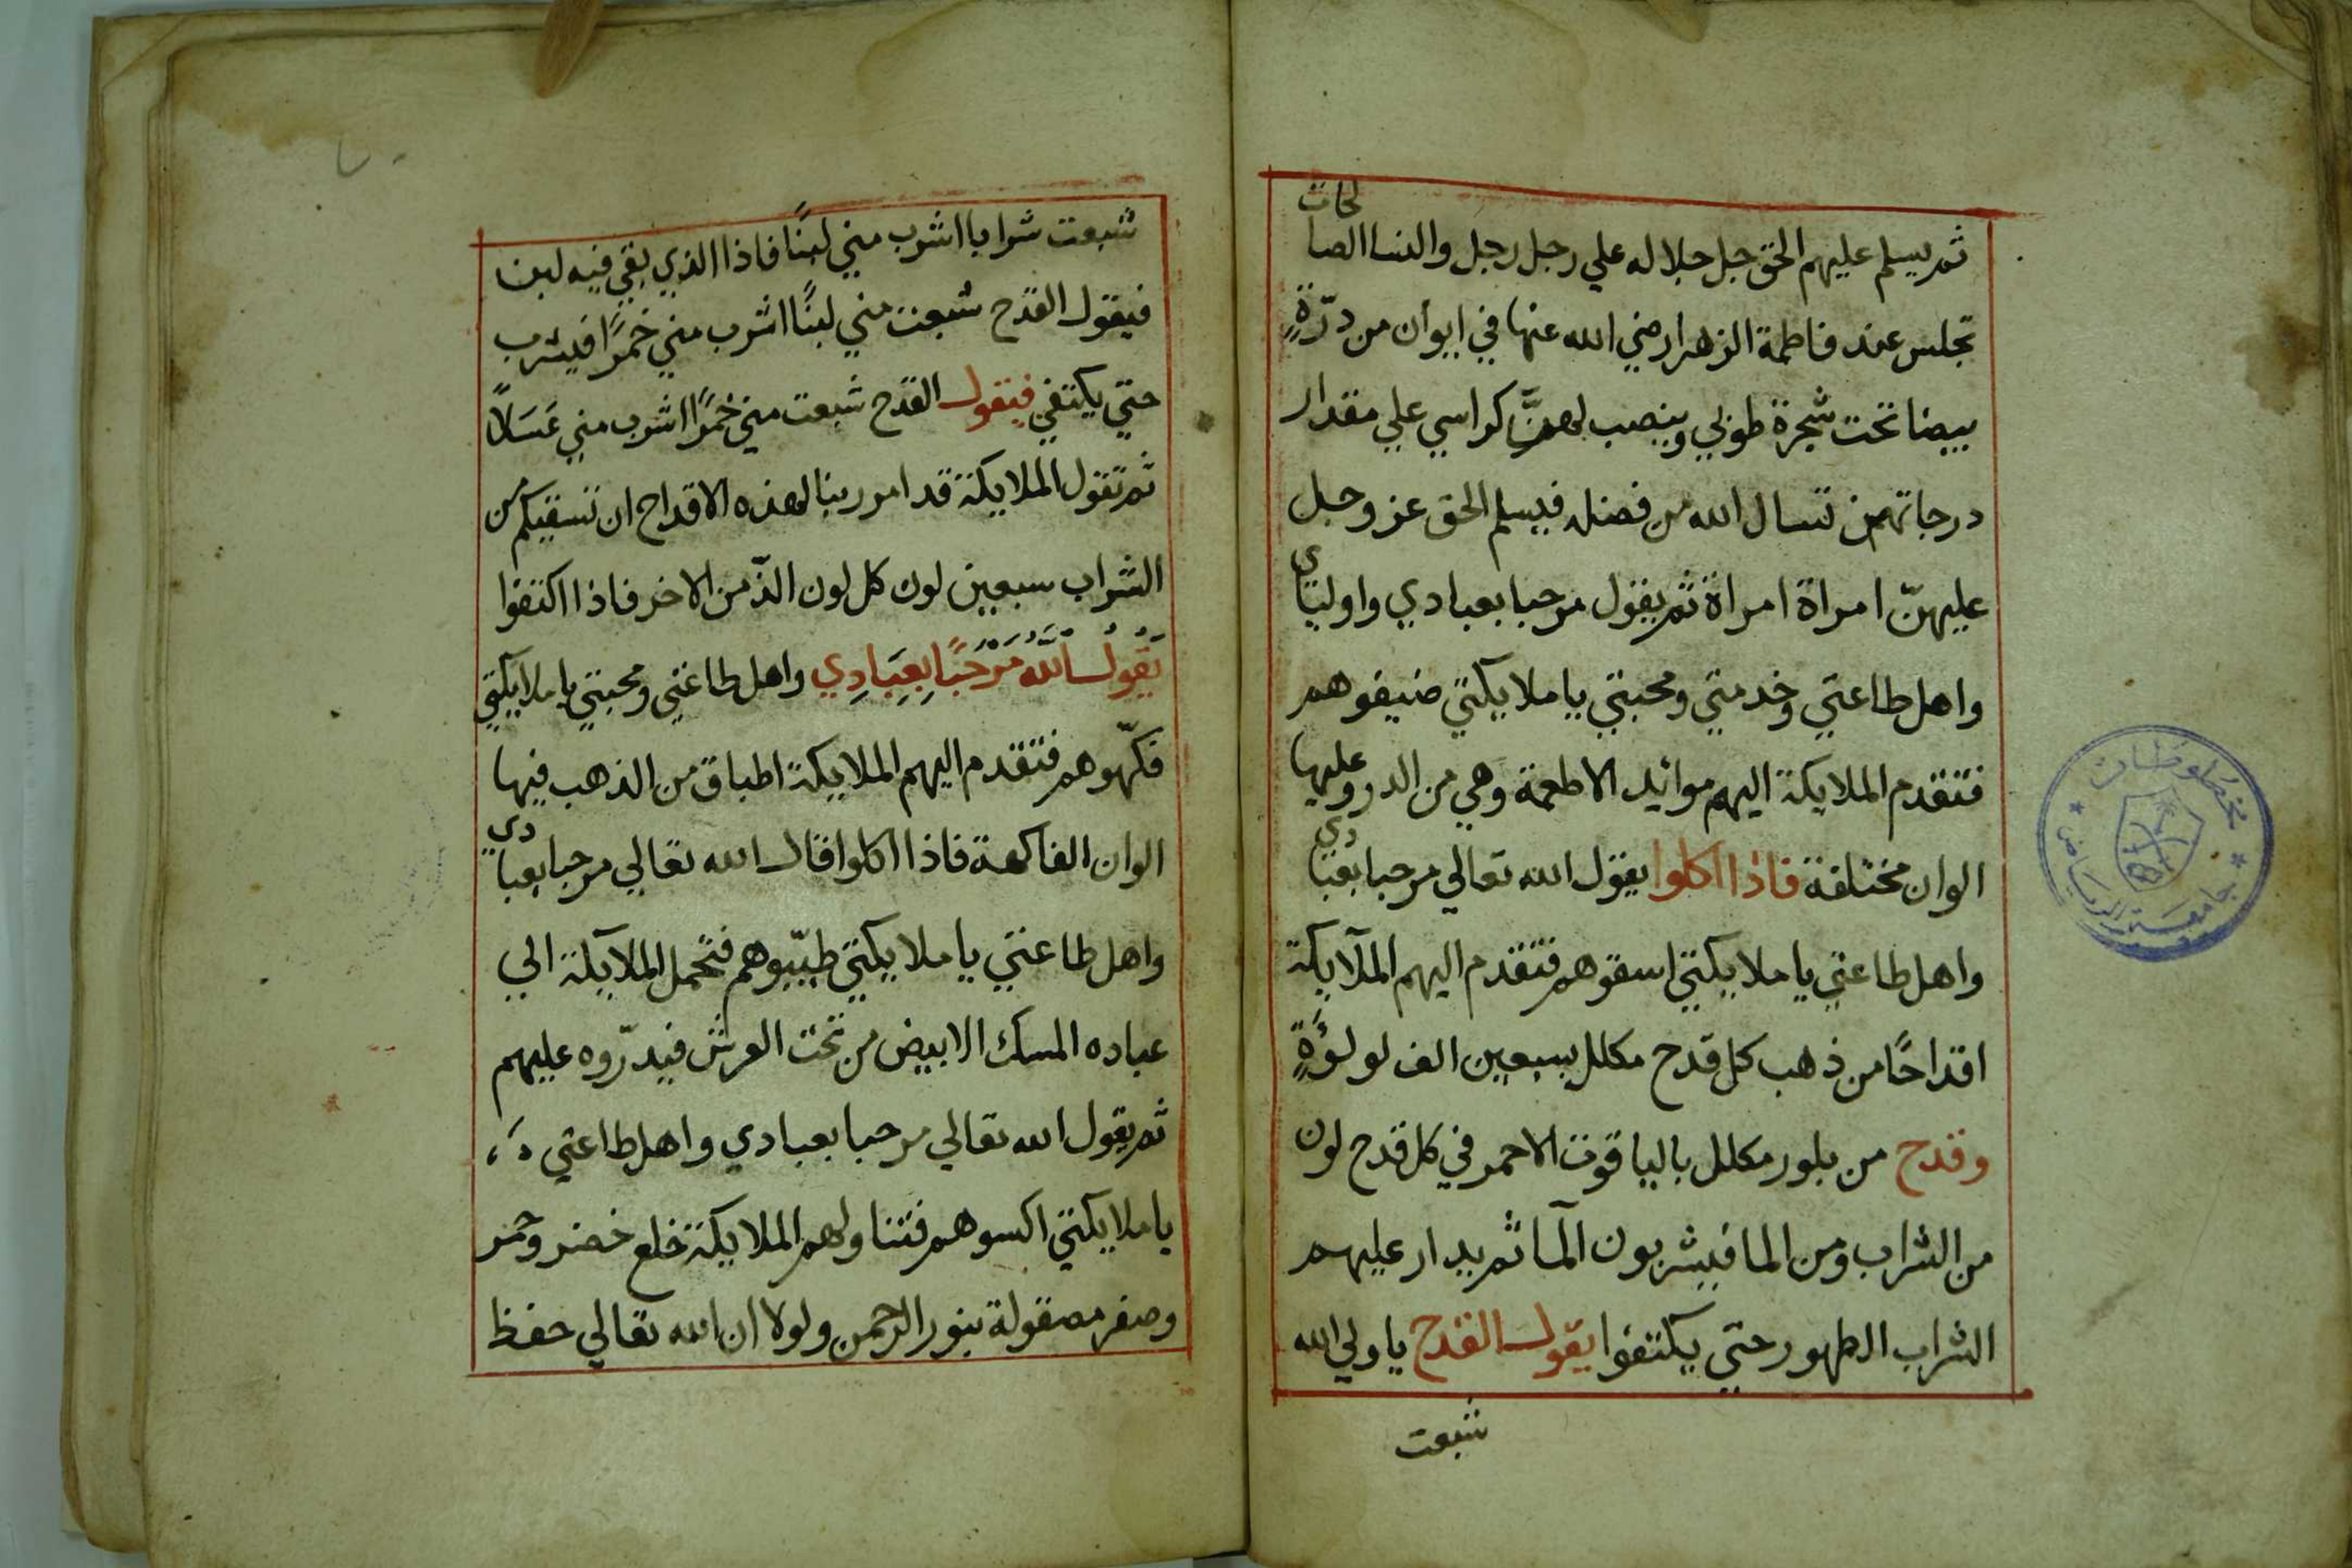 ثم يسلم عليهم الحق جل جلاله علي رجل رجل والنسا الصالحات
تجلس عند فاطمة الزهرا رضي الله عنها في ايوان من درّةٍ
بيضا تحت شجرة طوبي وينصب لهنَّ كراسي علي مقدار
درجاتهن تسال الله من فضله فيسلم الحق عز وجل
عليهنّ امراة امراة ثم يقول مرحبا بعبادي واوليتاي
واهل طاعتي وخدمتي ومحبتي يا ملايكتي ضيفوهم
فتقدم الملايكة اليهم موائد الاطعمة وهي من الدر وعليها
الوان مختلفة فاذا اكلوا يقول الله تعالي مرحبا بعبادي
واهل طاعتي يا ملايكتي اسقوهم فتقدم اليهم الملآيكة
اقداحًا من ذهب كل قدح مكلل بسبعين الف لولؤةٍ
وقدح من بلور مكلل بالياقوت الاحمر في كل قدح لون
من الشراب ومن الما فيشربون المآ ثم يدار عليهم
الشراب الطهور حتي يكتفوا يقول القدح يا ولي الله
شبعت
شبعت شرابا اشرب مني لبنًا فاذا الذي بقي فيه لبن
فيقول القدح شبعت مني لبنًا اشرب مني خمرًا فيشرب
حتي يكتفي فيقول القدح شبعت مني خمرًا اشرب مني عَسَلاً
ثم تقول الملايكة قد امر ربنا لهذه الاقداح ان تسقيكم من
الشراب سبعين لون كل لون الذّ من الاخر فاذا اكتفوا
يَقُولُ اللَّهُ مَرْحَبًا بِعِبَادِي واهل طاعتي ومحبتي يا ملايكتي
فكّهوهم فتقدم اليهم الملايكة اطباق من الذهب فيها
الوان الفاكهة فاذا اكلوا قال الله تعالي مرحبا بعبادي
واهل طاعتي يا ملايكتي طيّبوهم فتحمل الملآيكة الي
عباده المسك الابيض من تحت العرش فيدرّوه عليهم
ثم يقول الله تعالي مرحبا بعبادي واهل طاعتي
يا ملايكتي اكسوهم فتناولهم الملايكة خلع خضر وحمر
وصفر مصقولة بنور الرحمن ولولا ان الله تعالي حفظ
مخطوطات
جامعة الرياض